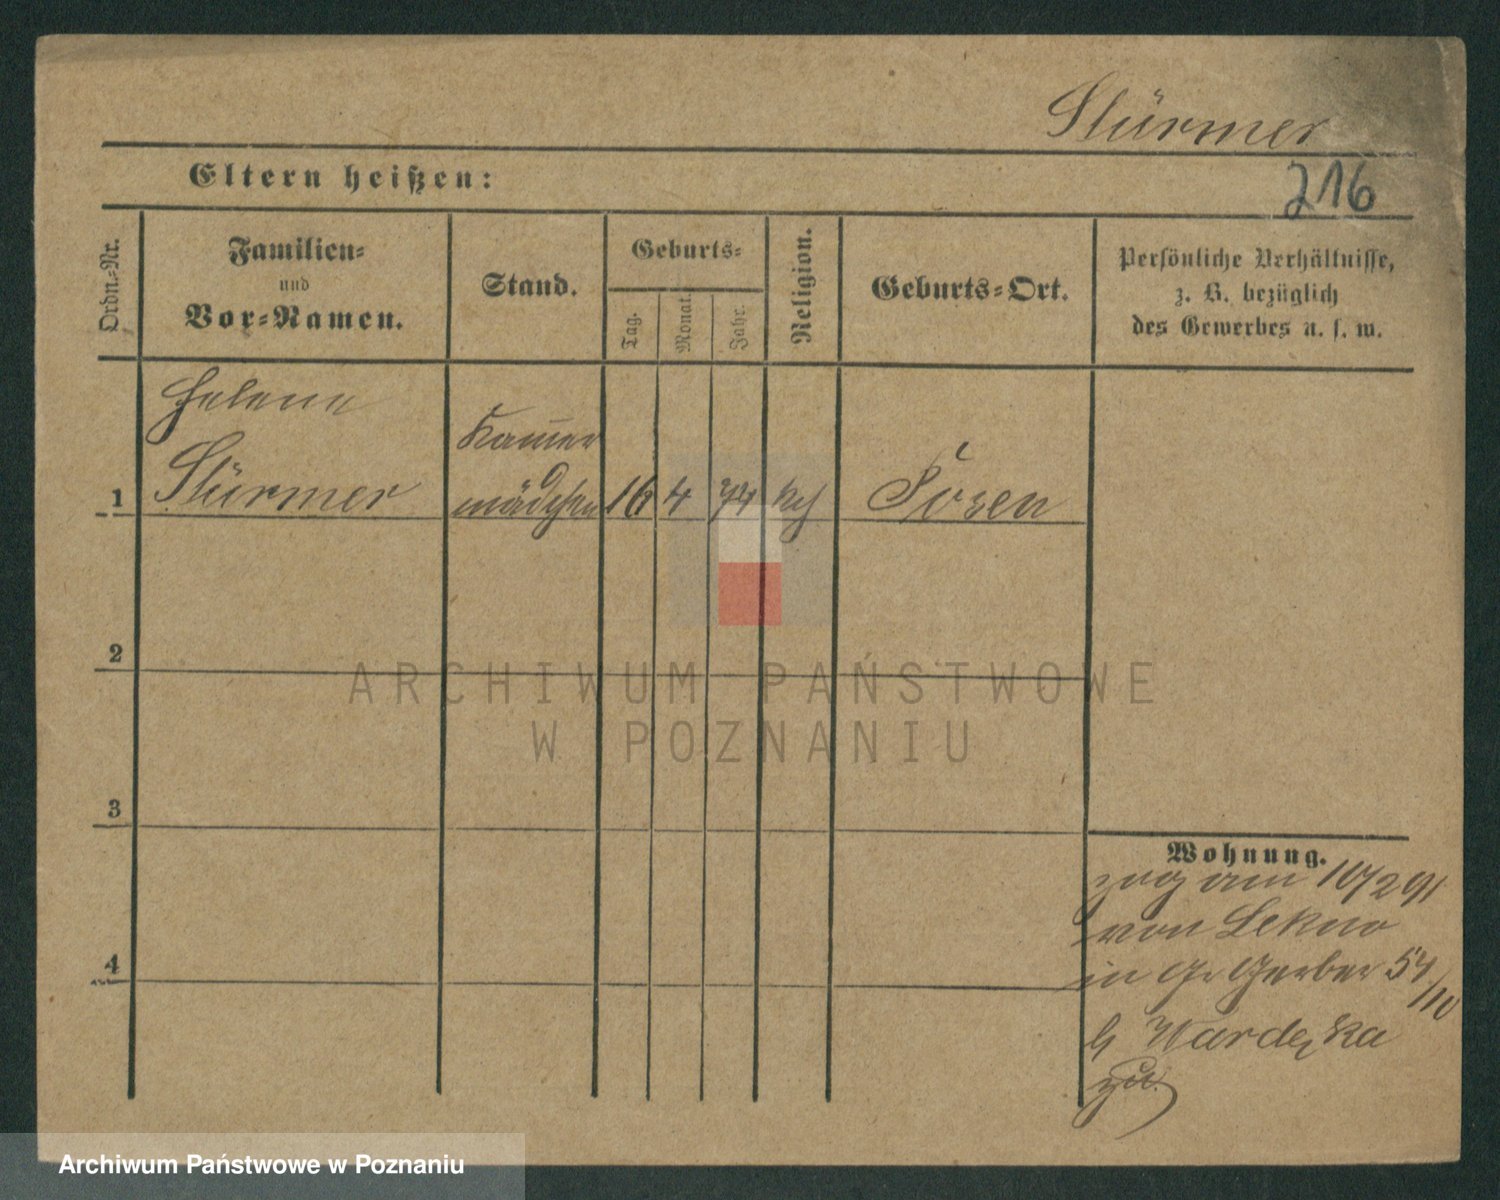 Stürmer
Eltern heißen:
216
Ordn.-Nr.
Familien-
und
Vor-Namen.
Stand.
Geburts-
Tag.
Monat.
Jahr.
Religion.
Geburts-Ort.
Persönliche Verhältnisse,
z. B. bezüglich
des Gewerbes u. s. w.
Helene
Stürmer
Kam̅er
mädchen
1
16 4 74 kth
Posen
2
ARCHIWUM PAŃSTWOWE
W POZNANIU
3
Wohnung.
zog am 10/2 91
von Lekno
in Gr Gerber 54/10
b Wardezka
zu.
4
Archiwum Państwowe w Poznaniu